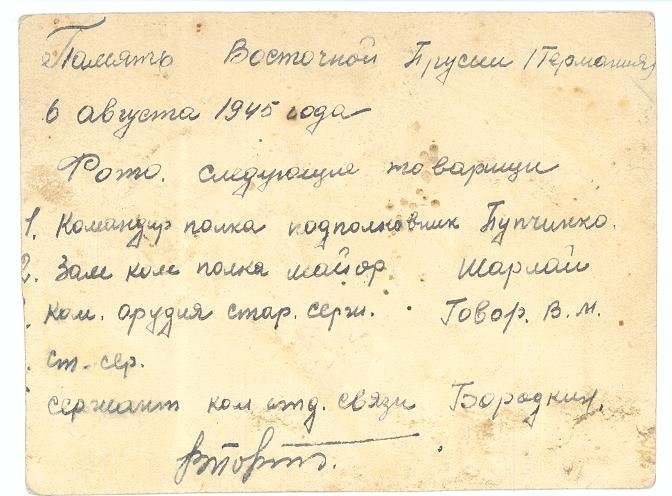 Память Восточной Пруссии (Германия)
6 августа 1945 года
Фото. следующие товарищи
1. Командир полка подполковник Пупчинко.
2. Зам ком полка майор Шарлай
ком. орудия стар. серж. Говор. В. М.
ст. сер.
сержант ком отд. связи Бородкин.